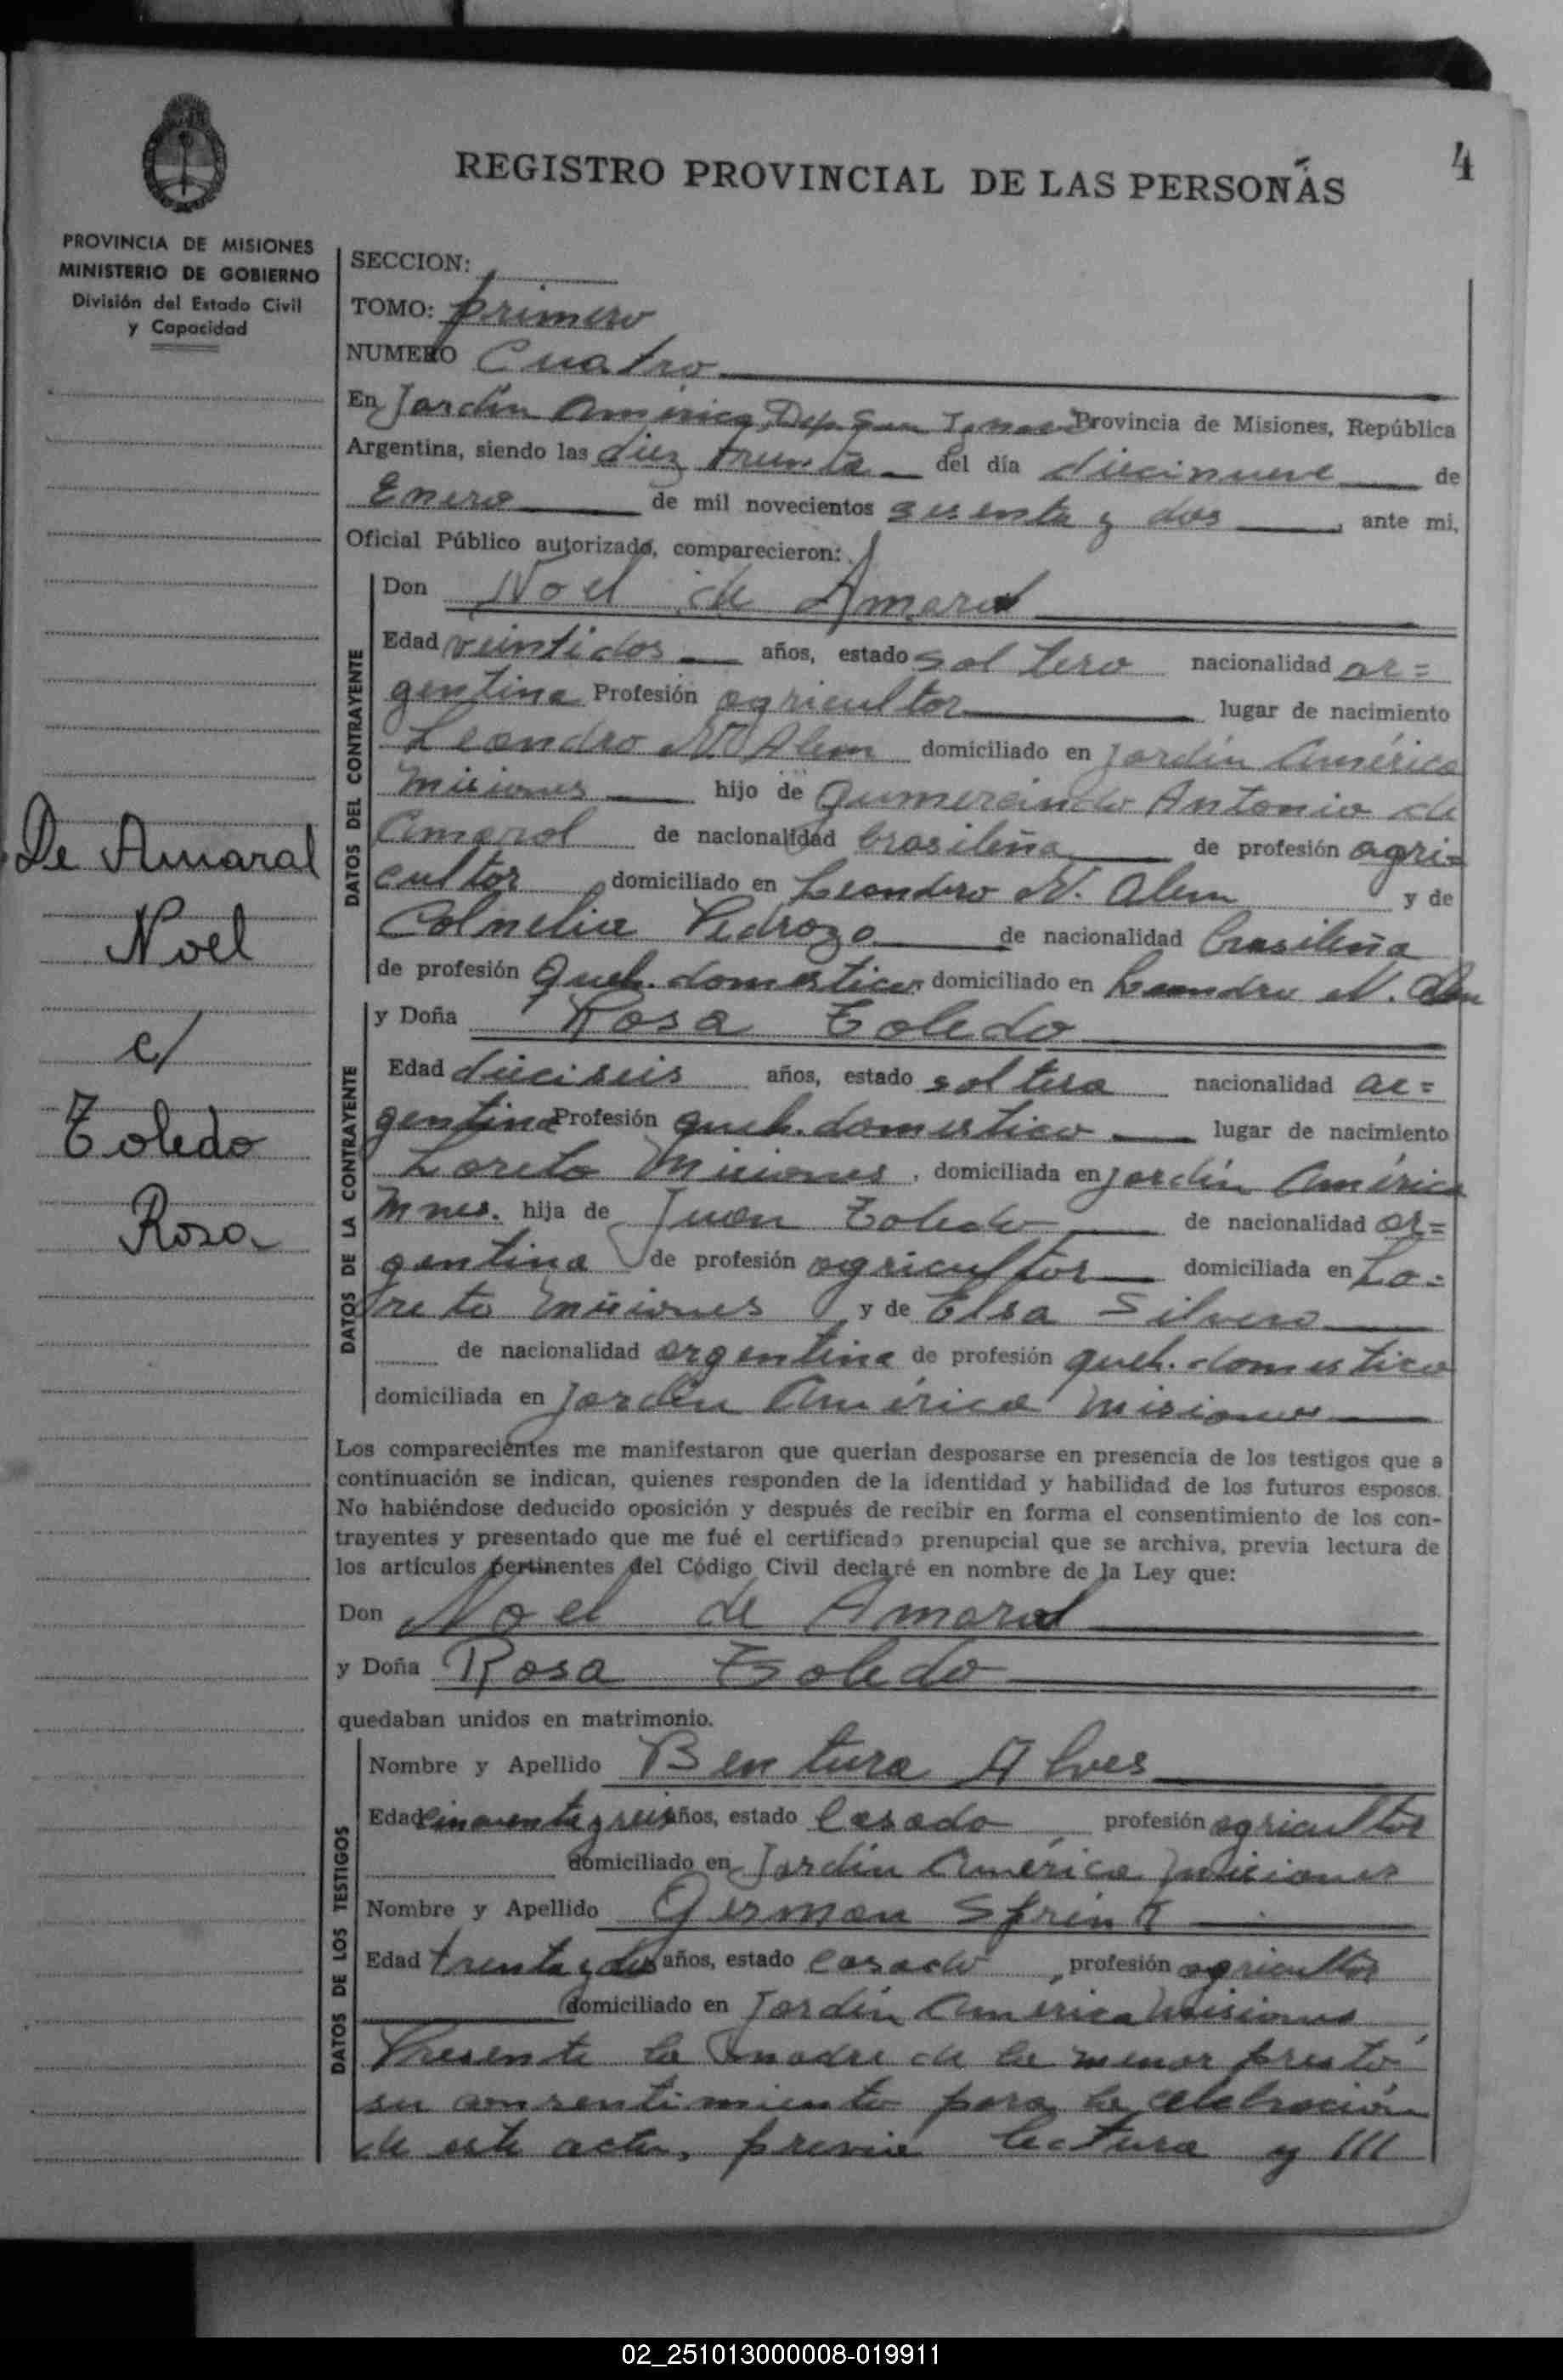 REGISTRO PROVINCIAL DE LAS PERSONAS
4
PROVINCIA DE MISIONES
MINISTERIO DE GOBIERNO
División del Estado Civil
y Capacidad
De Amaral
Noel
c/
Toledo
Rosa
SECCION:
TOMO: primero
NUMERO Cuatro
En Jardín América, Dep. San Ignacio Provincia de Misiones, República
Argentina, siendo las diez treinta del día diecinueve de
Enero de mil novecientos sesenta y dos, ante mi,
Oficial Público autorizado, comparecieron:
DATOS DEL CONTRAYENTE
Don Noel de Amaral
Edad veintidos años, estado soltero nacionalidad ar=
gentina Profesión agricultor lugar de nacimiento
Leandro N. Alem domiciliado en Jardín América
Misiones hijo de Gumercindo Antonio de
Amaral de nacionalidad brasileña de profesión agri=
cultor domiciliado en Leandro N. Alem y de
Colnelia Pedrozo de nacionalidad brasileña
de profesión Queh. domesticos domiciliado en Leandro N. Alem
DATOS DE LA CONTRAYENTE
y Doña Rosa Toledo
Edad dieciseis años, estado soltera nacionalidad ar=
gentina Profesión queh. domestico lugar de nacimiento
Loreto Misiones, domiciliada en Jardín América
Mnes. hija de Juan Toledo de nacionalidad ar=
gentina de profesión agricultor domiciliada en Lo=
reto Misiones y de Elsa Silvero
de nacionalidad argentina de profesión queh. domestico
domiciliada en Jardín América Misiones
Los comparecientes me manifestaron que querían desposarse en presencia de los testigos que a
continuación se indican, quienes responden de la identidad y habilidad de los futuros esposos.
No habiéndose deducido oposición y después de recibir en forma el consentimiento de los con-
trayentes y presentado que me fué el certificado prenupcial que se archiva, previa lectura de
los artículos pertinentes del Código Civil declaré en nombre de la Ley que:
Don Noel de Amaral
y Doña Rosa Toledo
quedaban unidos en matrimonio.
DATOS DE LOS TESTIGOS
Nombre y Apellido Bentura Alves
Edad años, estado Casado profesión agricultor
domiciliado en Jardín América Misiones
Nombre y Apellido German Sprink
Edad treinta y dos años, estado casado, profesión agricultor
domiciliado en Jardín América Misiones
Presente la madre de la menor prestó
su consentimiento para la celebración
de este acto, previa lectura y ///
02_251013000008-019911